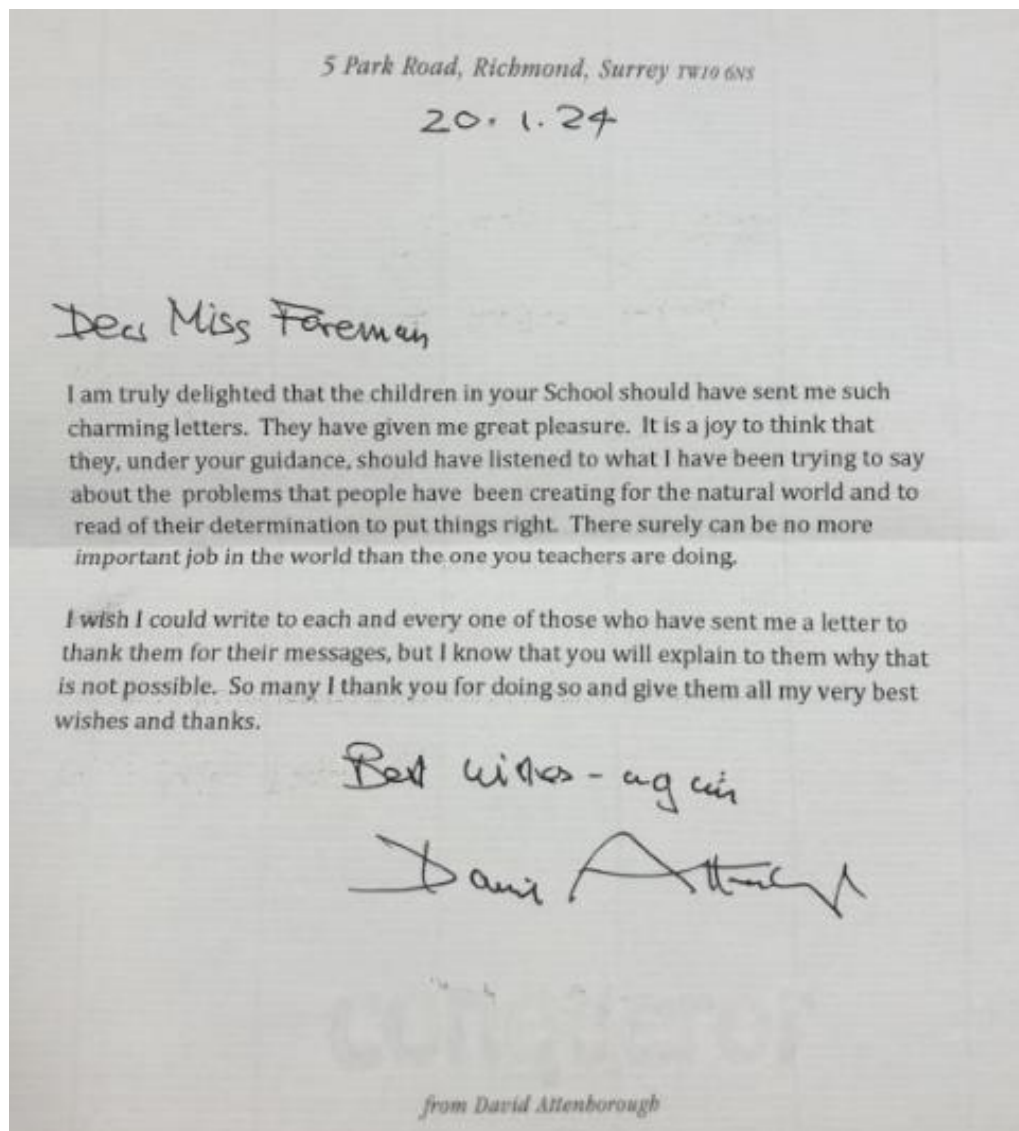 5 Park Road, Richmond, Surrey TW10 6NS
20.1.24
Dear Miss Foreman
I am truly delighted that the children in your School should have sent me such
charming letters. They have given me great pleasure. It is a joy to think that
they, under your guidance, should have listened to what I have been trying to say
about the problems that people have been creating for the natural world and to
read of their determination to put things right. There surely can be no more
important job in the world than the one you teachers are doing.
I wish I could write to each and every one of those who have sent me a letter to
thank them for their messages, but I know that you will explain to them why that
is not possible. So many I thank you for doing so and give them all my very best
wishes and thanks.
Best wishes - again
David Attenborough
from David Attenborough